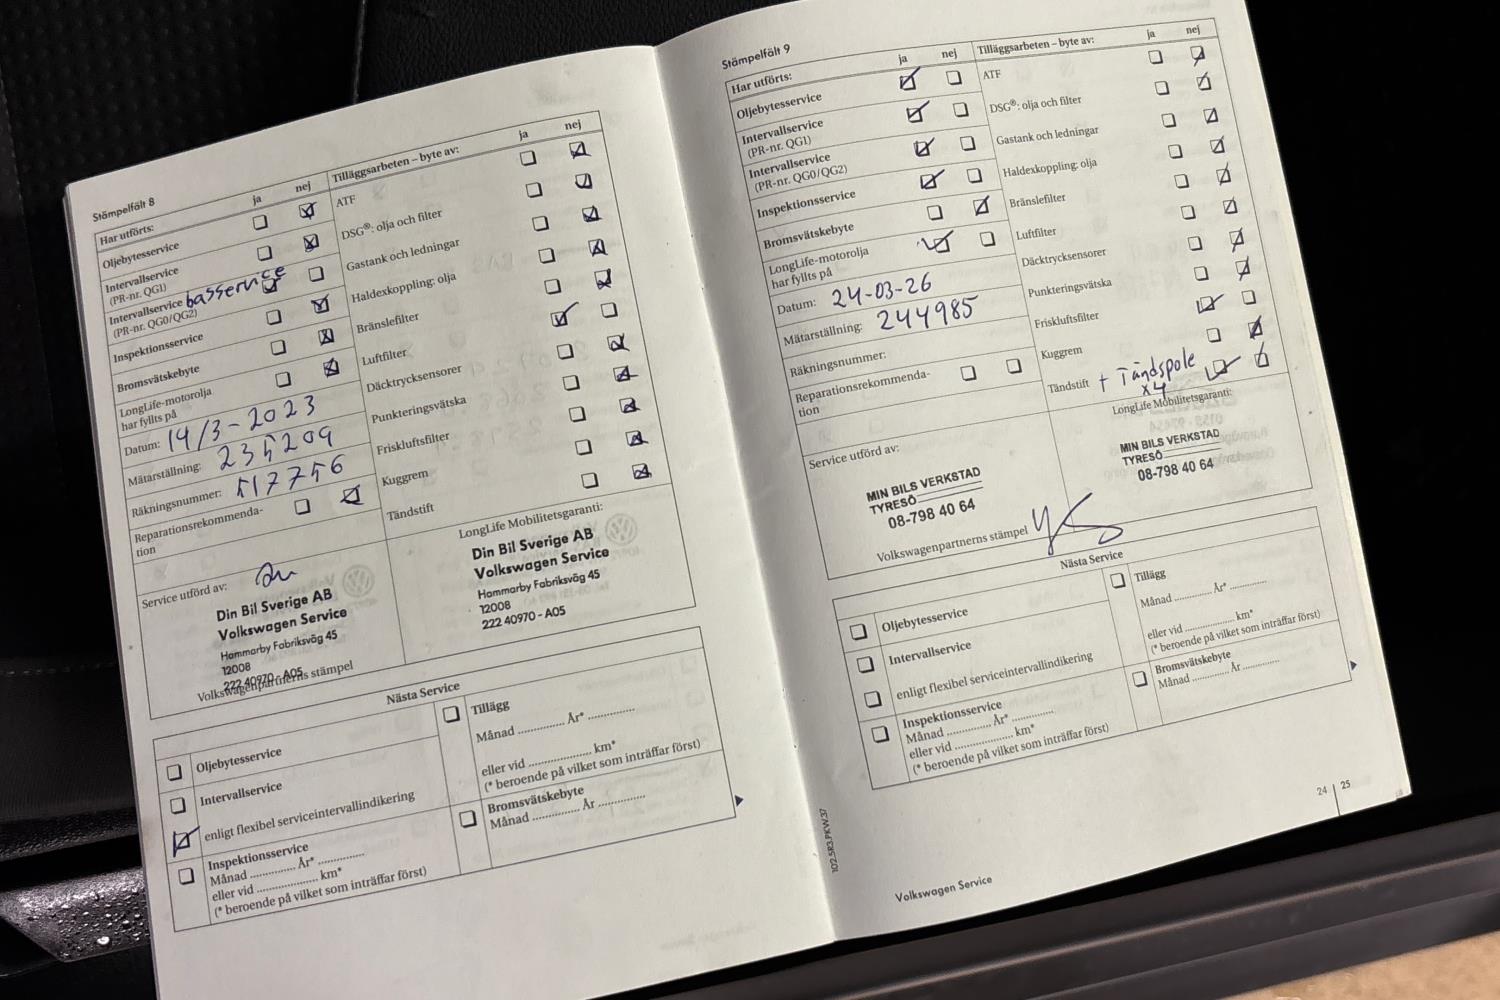 Stämpelfält 8
Har utförts: ja nej
Oljebytesservice
Intervallservice
(PR-nr. QG1)
Intervallservice basservice
(PR-nr. QG0/QG2)
Inspektionsservice
Bromsvätskebyte
LongLife-motorolja
har fyllts på
Datum: 14/3-2023
Mätarställning: 235209
Räkningsnummer: 517756
Reparationsrekommenda-
tion
Tilläggsarbeten – byte av: ja nej
ATF
DSG®: olja och filter
Gastank och ledningar
Haldexkoppling: olja
Bränslefilter
Luftfilter
Däcktrycksensorer
Punkteringsvätska
Friskluftsfilter
Kuggrem
Tändstift
Service utförd av:
Din Bil Sverige AB
Volkswagen Service
Hammarby Fabriksväg 45
12008
222 40970 - A05
Volkswagenpartnerns stämpel
LongLife Mobilitetsgaranti:
Din Bil Sverige AB
Volkswagen Service
Hammarby Fabriksväg 45
12008
222 40970 - A05
Nästa Service
Oljebytesservice
Intervallservice
enligt flexibel serviceintervallindikering
Inspektionsservice
Månad .............. År* ..............
eller vid .................. km*
(* beroende på vilket som inträffar först)
Tillägg
Månad .............. År* ..............
eller vid .................. km*
(* beroende på vilket som inträffar först)
Bromsvätskebyte
Månad .............. År ..............
Stämpelfält 9
Har utförts: ja nej
Oljebytesservice
Intervallservice
(PR-nr. QG1)
Intervallservice
(PR-nr. QG0/QG2)
Inspektionsservice
Bromsvätskebyte
LongLife-motorolja
har fyllts på
Datum: 24-03-26
Mätarställning: 244985
Räkningsnummer:
Reparationsrekommenda-
tion
Tilläggsarbeten – byte av: ja nej
ATF
DSG®: olja och filter
Gastank och ledningar
Haldexkoppling: olja
Bränslefilter
Luftfilter
Däcktrycksensorer
Punkteringsvätska
Friskluftsfilter
Kuggrem
Tändstift + Tändspole
x4
Service utförd av:
MIN BILS VERKSTAD
TYRESÖ
08-798 40 64
Volkswagenpartnerns stämpel
LongLife Mobilitetsgaranti:
MIN BILS VERKSTAD
TYRESÖ
08-798 40 64
Nästa Service
Oljebytesservice
Intervallservice
enligt flexibel serviceintervallindikering
Inspektionsservice
Månad .............. År* ..............
eller vid .................. km*
(* beroende på vilket som inträffar först)
Tillägg
Månad .............. År* ..............
eller vid .................. km*
(* beroende på vilket som inträffar först)
Bromsvätskebyte
Månad .............. År ..............
24 | 25
102.5R3.PKW.37
Volkswagen Service